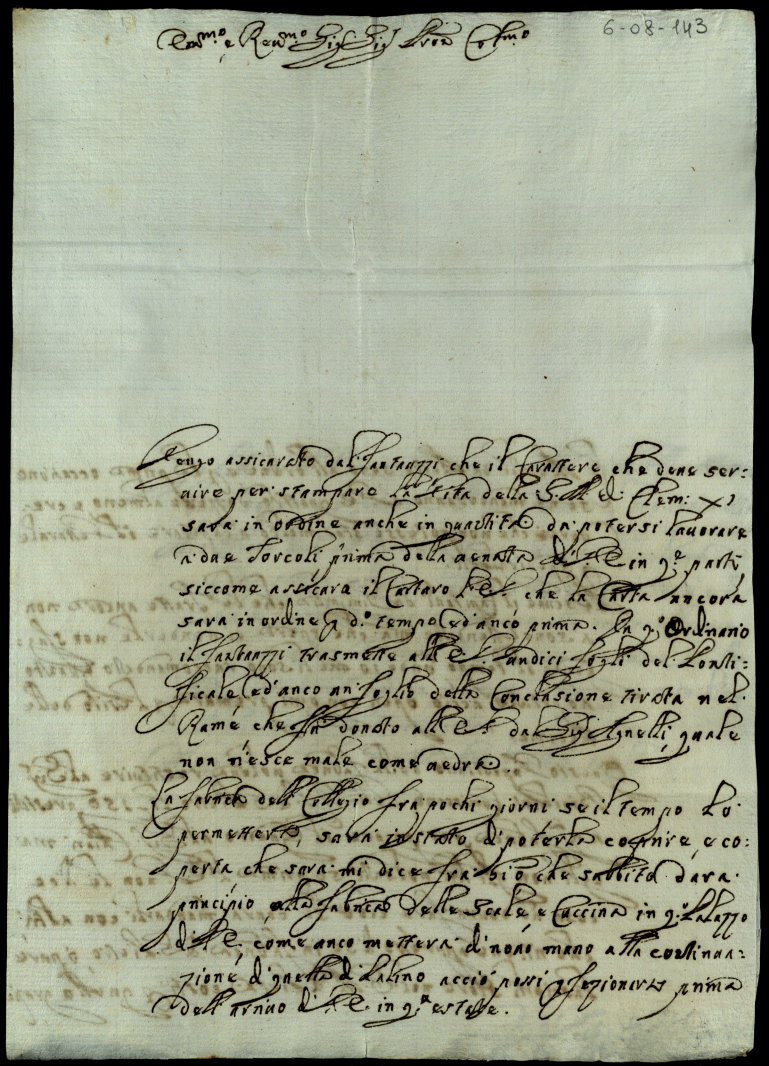 6-08-143
Em.mo e Rev.mo Sig.r Sig.r Pron Col.mo
Vengo assicurato dal Fantauzzi che il Carattere che deve ser=
uire per stampare la Vita della S. M. di Clem: XI
sarà in ordine anche in quantità da potersi lauorare
a due Torcoli prima della uenuta di V.E. in q.e parti
siccome assicura il Cartaro V.E. che la Carta ancora
sarà in ordine p d.o tempo ed anco prima. In q.o Ordinario
il Fantauzzi trasmette all' E.V. undici fogli del Ponti=
ficale ed anco un foglio della Conclusione tirata nel
Rame che fu donato all' E.V. dal Sig.r Agnelli, quale
non riesce male come uedrà.
La fabrica dell Collegio fra pochi giorni se il tempo lo
permetterà, sarà in stato di poterla coprire, e co=
perta che sarà mi dice fra bio che subbito darà
principio alla fabrica delle Scale e Cuccina in q.o Palazzo
di V.E. come anco metterà di nouo mano alla continua=
zione di quella di Latino acciò possi p fezionarsi prima
dell' arriuo di V.E. in q.a estate.